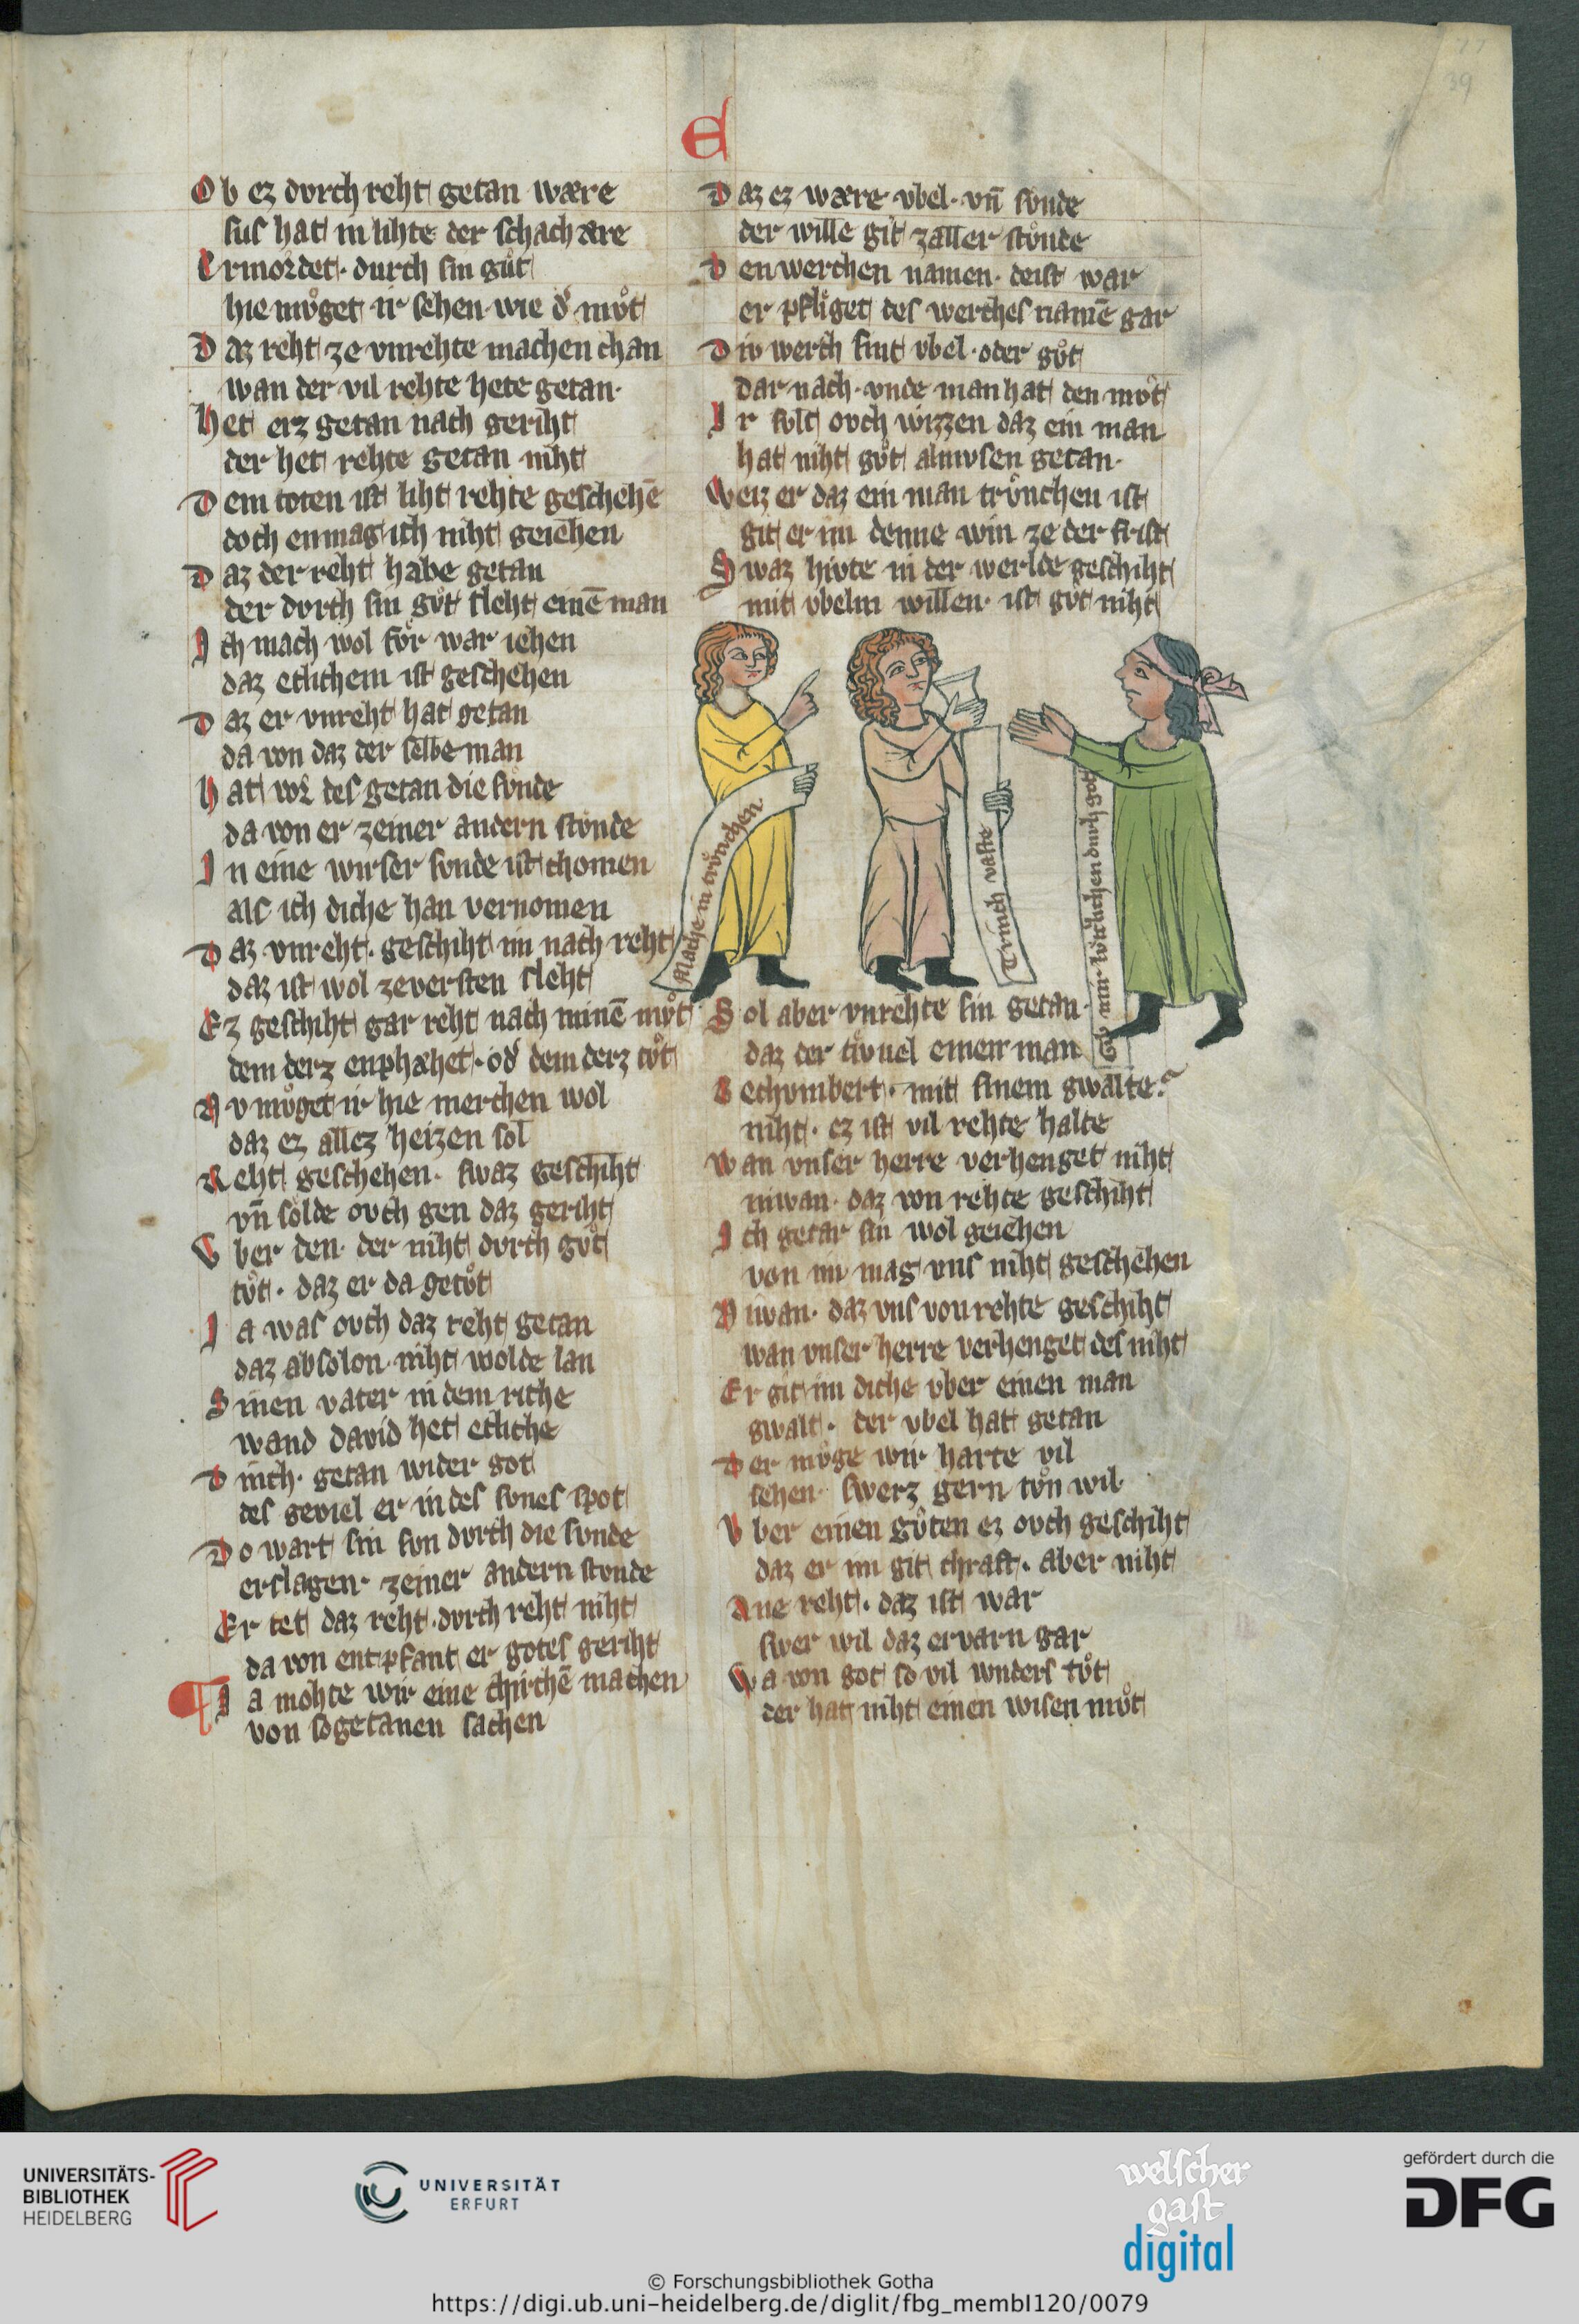 E
Ob ez dvrch reht getan wære
sus hat in lihte der schachære
Ermordet · durch sin gůt
hie mvͦget ir sehen · wie d͛ mvͦt
Daz reht ze vnrehte machen chan
wan der vil rehte hete getan ·
Het erz getan nach geriht
der het rehte getan niht
Dem toten ist liht rehte geschehē
doch enmag ich niht geiehen
Daz der reht habe getan
der dvrch sin gvͦt sleht einē man
Ich mach wol fvͦr war iehen
daz etlichem ist geschehen
Daz er vnreht hat getan
da von daz der selbe man
Hat vor des getan die svnde
da von er zeiner andern stvnde
In eine wirser svnde ist chomen
als ich diche han vernomen
Daz vnreht · geschiht im nach reht
daz ist wol zeversten sleht
Ez geschiht gar reht nach minē mvͦt
dem derz enphæhet · od͛ dem derz tvͦt
Nv mvͦget ir hie merchen wol
daz ez allez heizen sol
Reht geschehen · swaz geschiht
vn̄ solde ovch gen daz geriht
Vber den · der niht dvrch gvͦt
tvͦt · daz er da getvͦt
Ia was ovch daz reht getan
daz absolon · niht wolde lan
Sinen vater in dem riche
wand david het etliche
Dinch · getan wider got
des geviel er in des svnes spot
Do wart sin svn dvrch die svnde
erslagen · zeiner andern stvnde
Er tet daz reht · dvrch reht niht
da von entpfant er gotes geriht
¶ Ia mohte wir eine chirchē machen
von sogetanen sachen
Daz ez wære vbel · vn̄ svnde
der wille git zaller stvnde
Den werchen namen · deist war
er pfliget des werches namē gar
Div werch sint vbel · oder gvͦt
dar nach · vnde man hat den mvͦt
Ir svlt ovch wizzen daz ein man
hat niht gvͦt almvsen getan ·
Weiz er daz ein man trvͦnchen ist
git er im denne win ze der frist
Swaz hivte in der werlde geschiht
mit vbelm willen · ist gvͦt niht
Mache in trvͦnchen
Trinch vaste
Gip mir trvͦnchen durch got
Sol aber vnrehte sin getan ·
daz der tivuel einen man
Bechvmbert · mit sinem gwalte ·
niht · ez ist vil rehte halte
Wan vnser herre verhenget niht
niwan · daz von rehte geschiht
Ich getar sin wol geiehen
von im mag vns niht geschehen
Niwan · daz vns von rehte geschiht
wan vnser herre verhenget des niht
Er git im diche vber einen man
gwalt · der vbel hat getan
Der mvͦge wir harte vil
sehen · swerz gern tvͦn wil ·
Vber einen gůten ez ovch geschiht
daz er im git chraft · aber niht
Ane reht · daz ist war
swer wil daz ervarn gar
Wa von got so vil wnders tvͦt
der hat niht einen wisen mvͦt
39
UNIVERSITÄTS-
BIBLIOTHEK
HEIDELBERG
UNIVERSITÄT
ERFURT
welscher
gast
digital
gefördert durch die
DFG
© Forschungsbibliothek Gotha
https://digi.ub.uni-heidelberg.de/diglit/fbg_membI120/0079